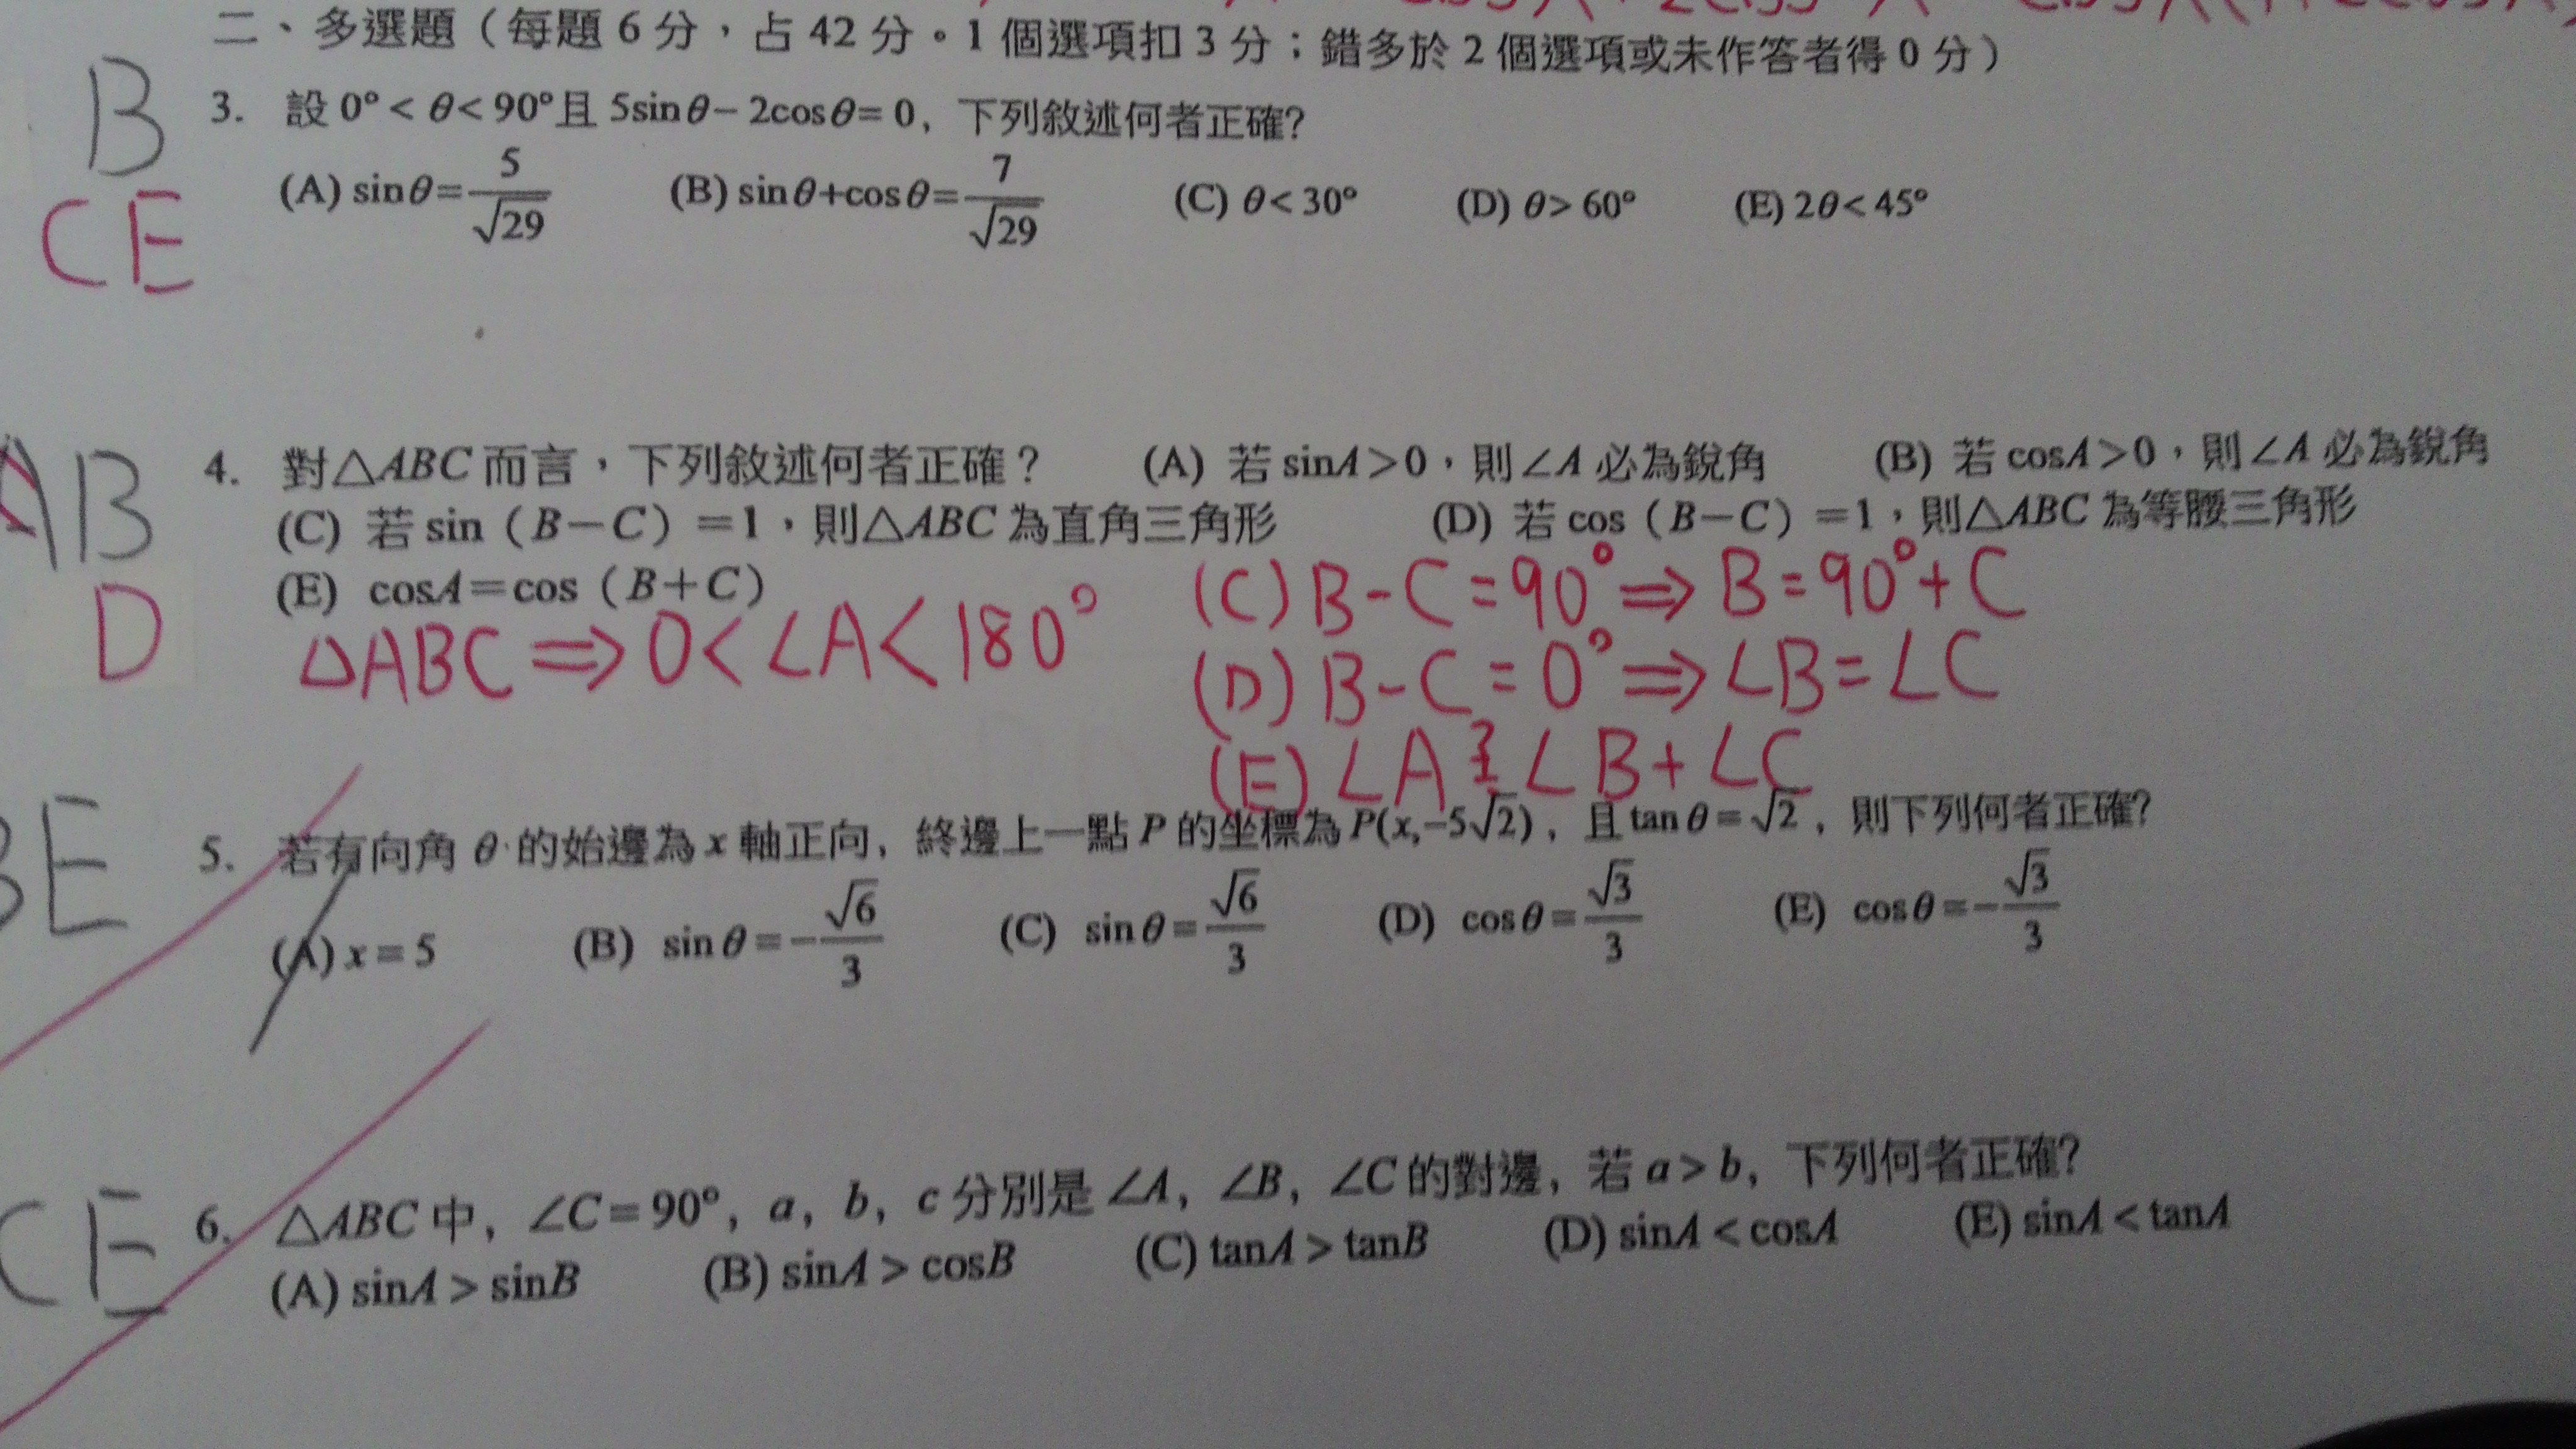 二、多選題（每題 6 分，占 42 分。1 個選項扣 3 分；錯多於 2 個選項或未作答者得 0 分）
B
CE
3. 設 0° < θ < 90°且 5sinθ − 2cosθ = 0, 下列敘述何者正確?
(A) sinθ = 5/√29 (B) sinθ+cosθ = 7/√29 (C) θ < 30° (D) θ > 60° (E) 2θ < 45°
AB
D
4. 對△ABC 而言，下列敘述何者正確？ (A) 若 sinA＞0，則∠A 必為銳角 (B) 若 cosA＞0，則∠A 必為銳角
(C) 若 sin（B－C）＝1，則△ABC 為直角三角形 (D) 若 cos（B－C）＝1，則△ABC 為等腰三角形
(E) cosA＝cos（B＋C）
△ABC ⇒ 0 < ∠A < 180°
(C) B - C = 90° ⇒ B = 90° + C
(D) B - C = 0° ⇒ ∠B = ∠C
(E) ∠A ∠B + ∠C
BE
5. 若有向角 θ 的始邊為 x 軸正向, 終邊上一點 P 的坐標為 P(x,−5√2), 且 tanθ = √2, 則下列何者正確?
(A) x = 5 (B) sinθ = −√6/3 (C) sinθ = √6/3 (D) cosθ = √3/3 (E) cosθ = −√3/3
CE
6. △ABC 中, ∠C = 90°, a, b, c 分別是 ∠A, ∠B, ∠C 的對邊, 若 a > b, 下列何者正確?
(A) sinA > sinB (B) sinA > cosB (C) tanA > tanB (D) sinA < cosA (E) sinA < tanA